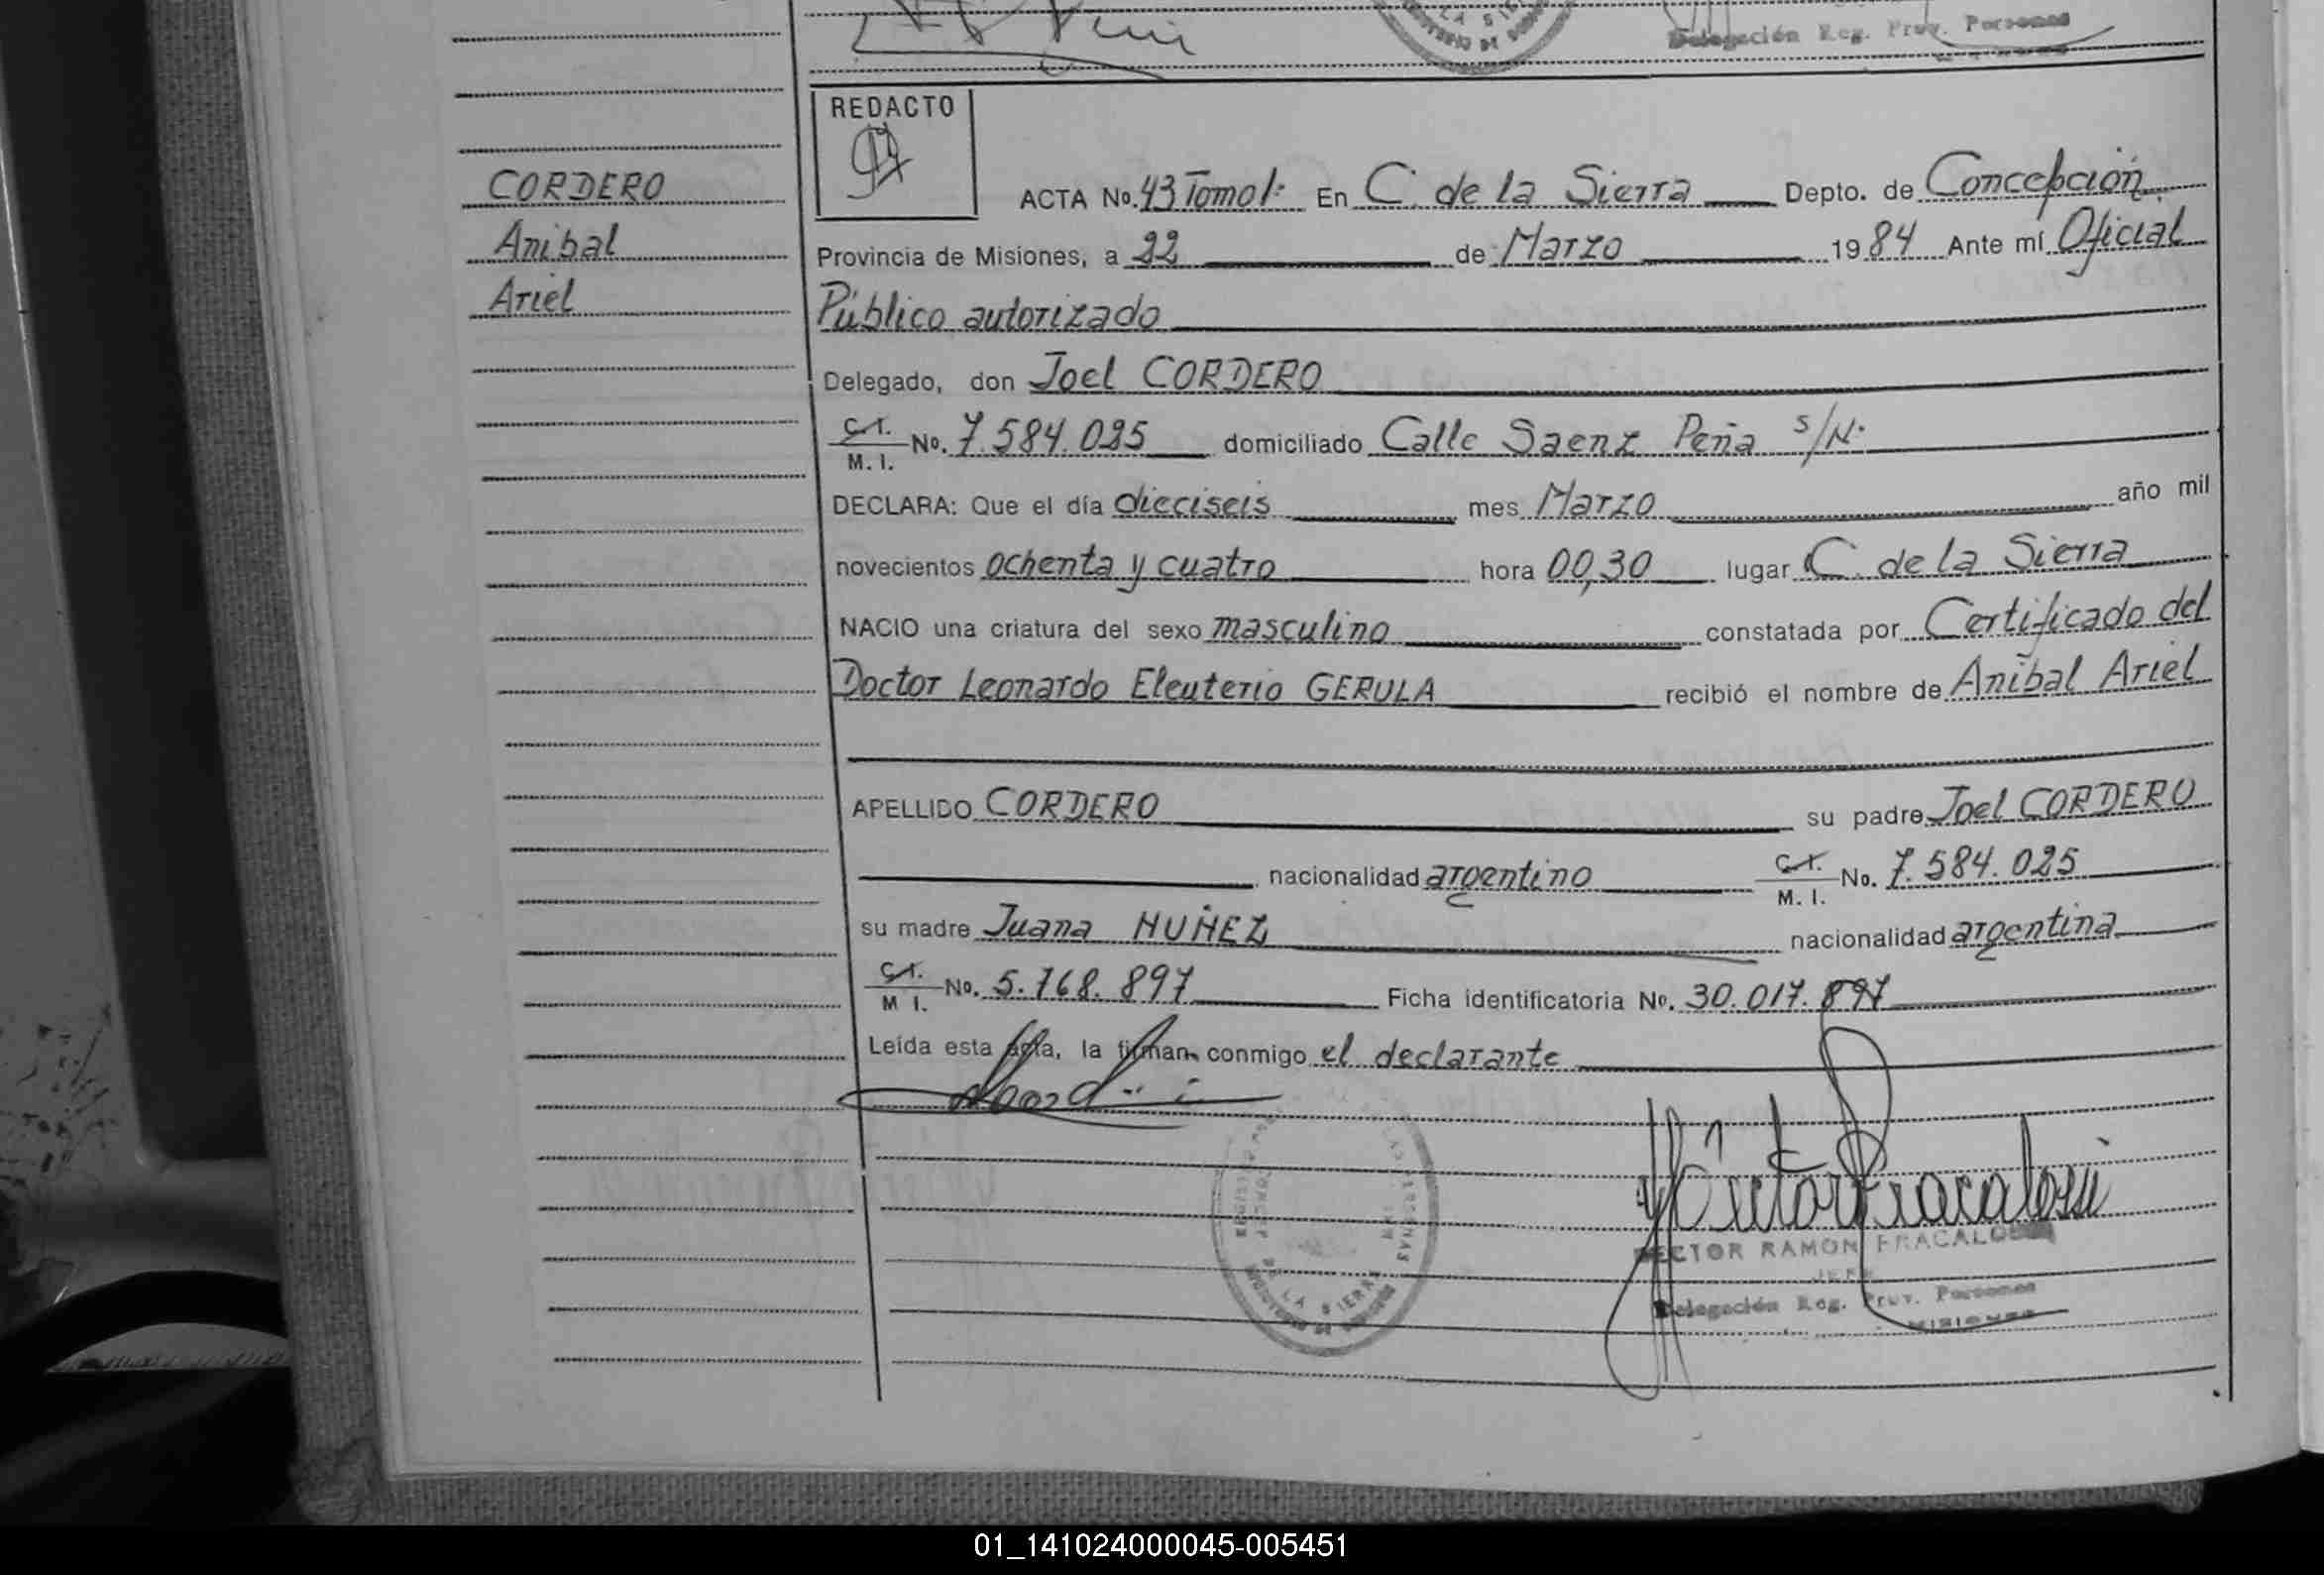 LA SIE
Delegación Reg. Prov. Personas
REDACTO
CORDERO
Anibal
Ariel
ACTA No. 43 Tomo I: En C. de la Sierra Depto. de Concepción
Provincia de Misiones, a 22 de Marzo 1984 Ante mí Oficial
Público autorizado
Delegado, don Joel CORDERO
C.I.
M. I. No. 7.584.025 domiciliado Calle Saenz Peña s/N.
DECLARA: Que el día dieciseis mes Marzo año mil
novecientos ochenta y cuatro hora 00,30 lugar C. de la Sierra
NACIO una criatura del sexo masculino constatada por Certificado del
Doctor Leonardo Eleuterio GERULA recibió el nombre de Anibal Ariel
APELLIDO CORDERO su padre Joel CORDERO
nacionalidad argentino C.I.
M. I. No. 7.584.025
su madre Juana NUÑEZ nacionalidad argentina
C.I.
M I. No. 5.768.897 Ficha identificatoria No. 30.017.897
Leída esta acta, la firman conmigo el declarante
DE LA SIERRA
Victor Fracalossi
RAMON FRACALOSSI
JEFE
Delegación Reg. Prov. Personas
MISIONES
01_141024000045-005451